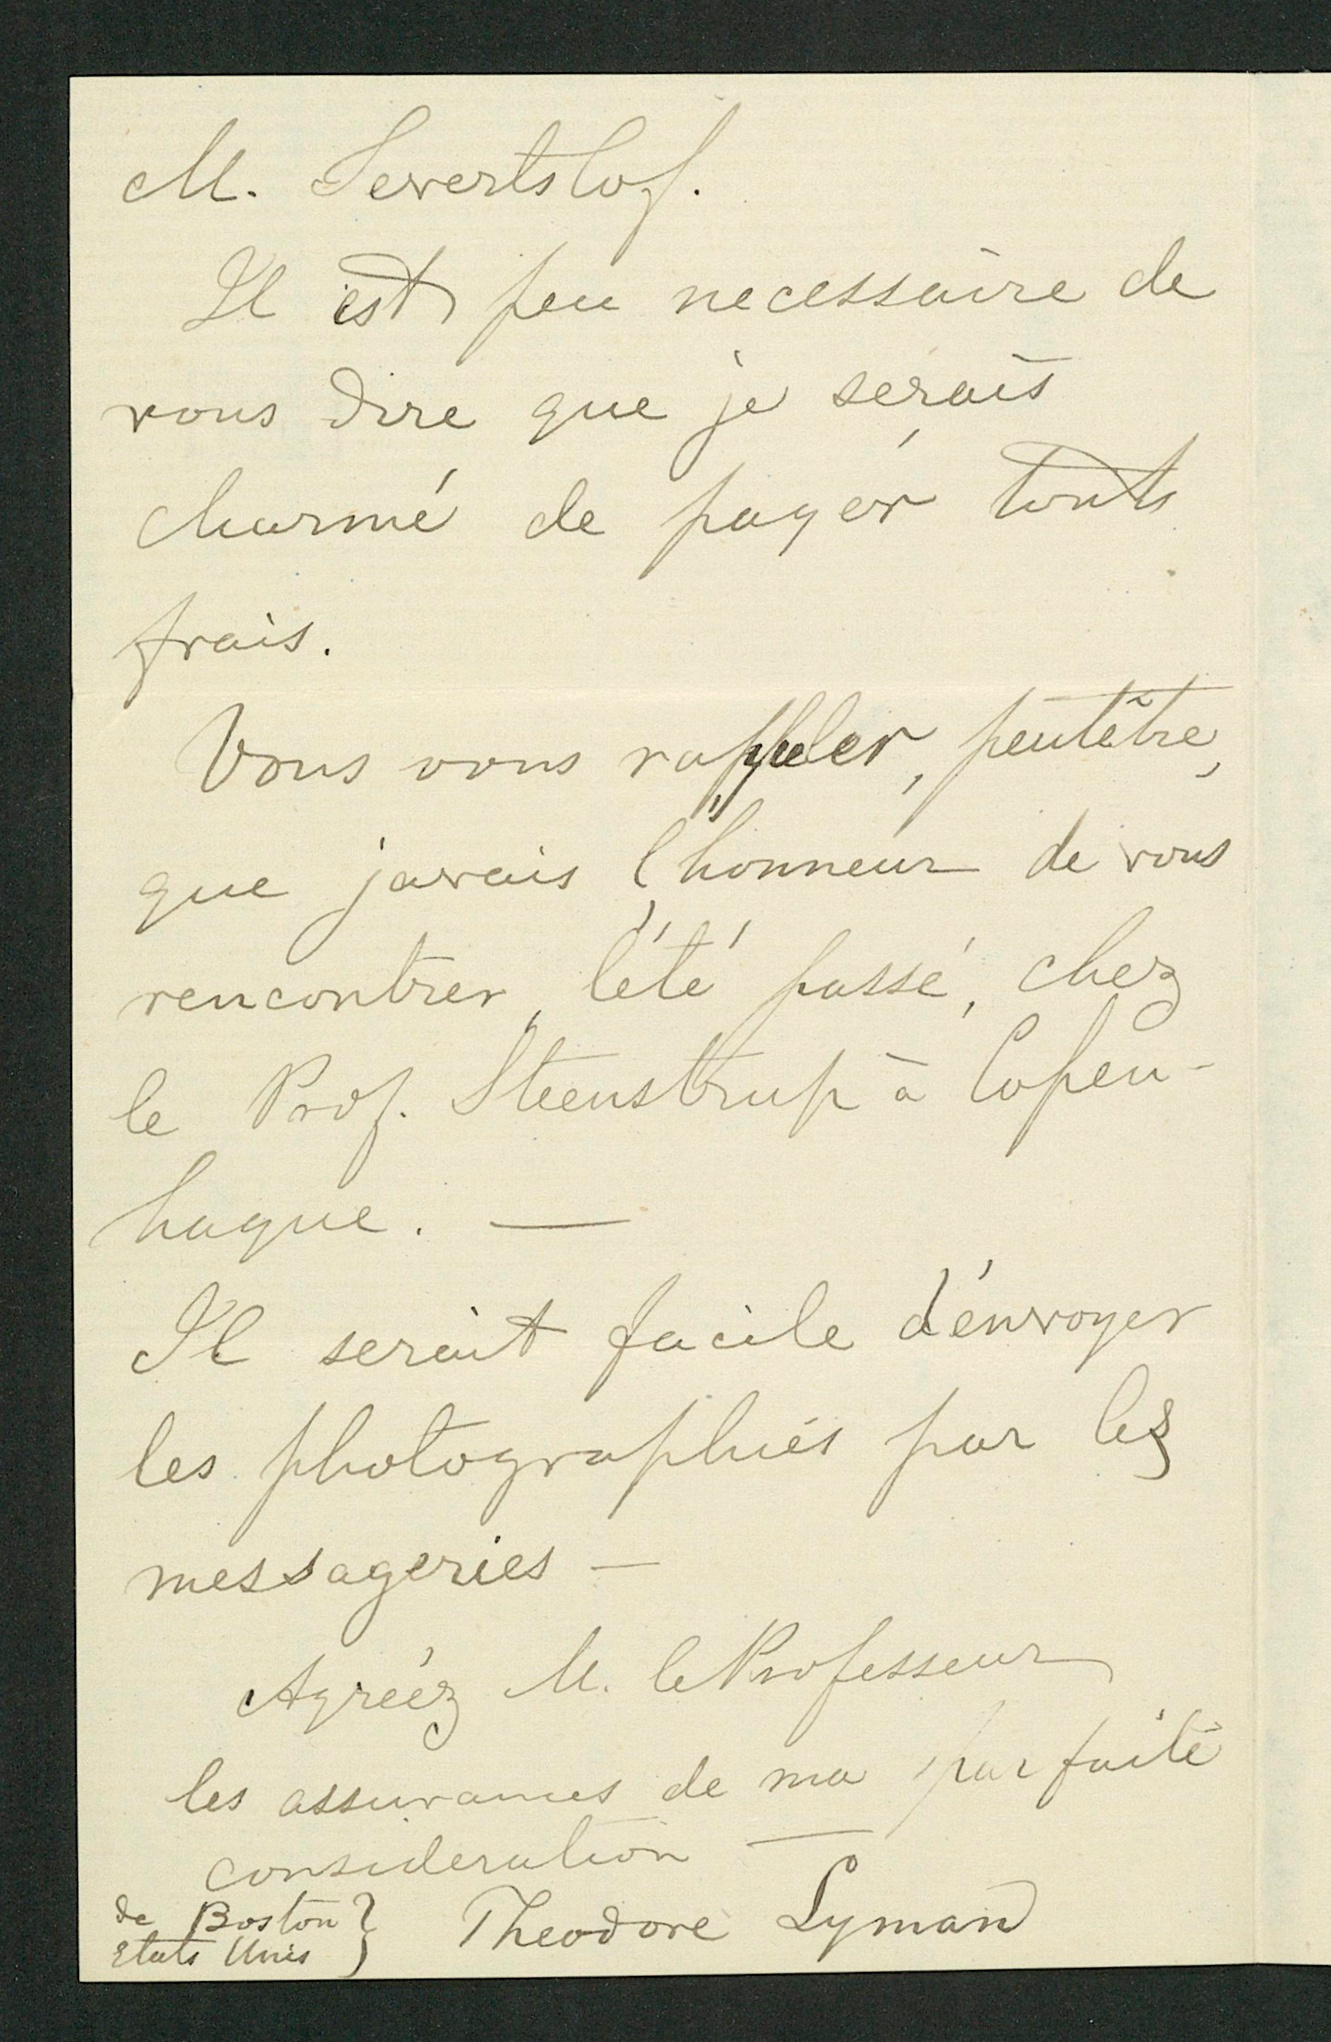 M. Severtslof.
Il est peu necessaire de
vous dire que je serais
charmé de payér touts
frais.
Vous vous rappeler, peutêtre,
que javais l'honneur de vous
rencontrer, l'été passé, chez
le Prof. Steenstrup à Copen-
hague. —
Il serait facile d'énvoyer
les photographies par les
messageries —
Agréez M. le Professeur
les assurances de ma parfaite
consideration —
de Boston } Theodore Lyman
Etats Unis